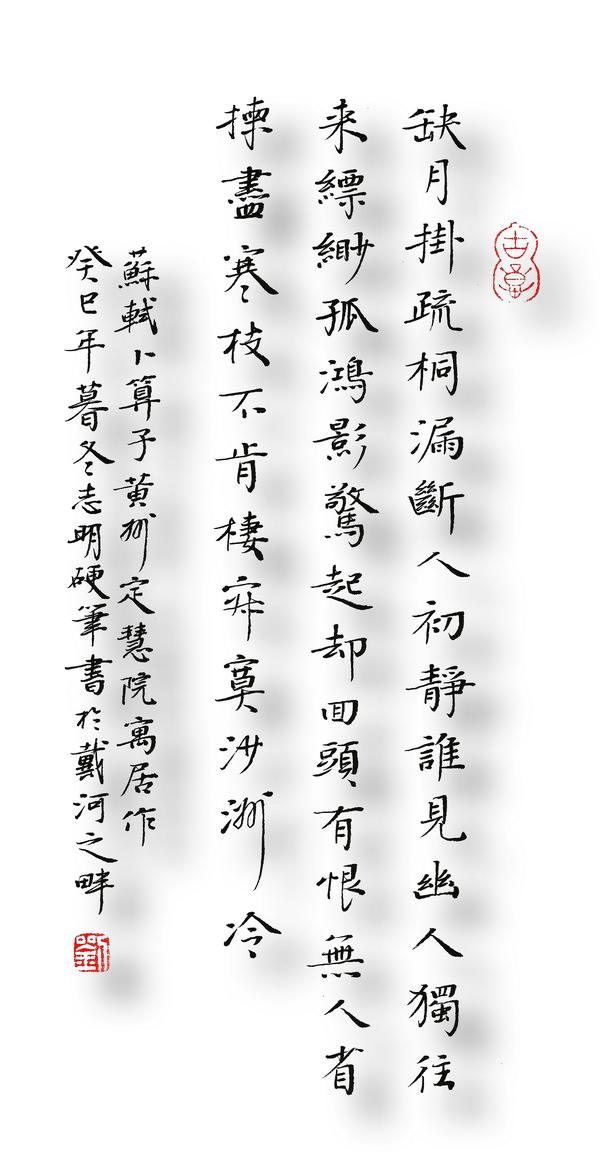 缺月掛疏桐漏斷人初靜誰見幽人獨往
来縹緲孤鴻影驚起却回頭有恨無人省
揀盡寒枝不肯棲寂寞沙洲冷
蘇軾卜算子黄州定慧院寓居作
癸巳年暮冬志明硬筆書於戴河之畔
劉